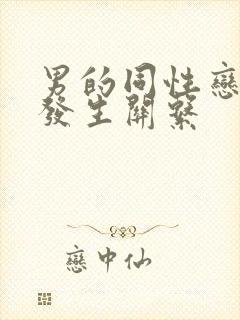 男的同性戀
發生關系
戀中仙